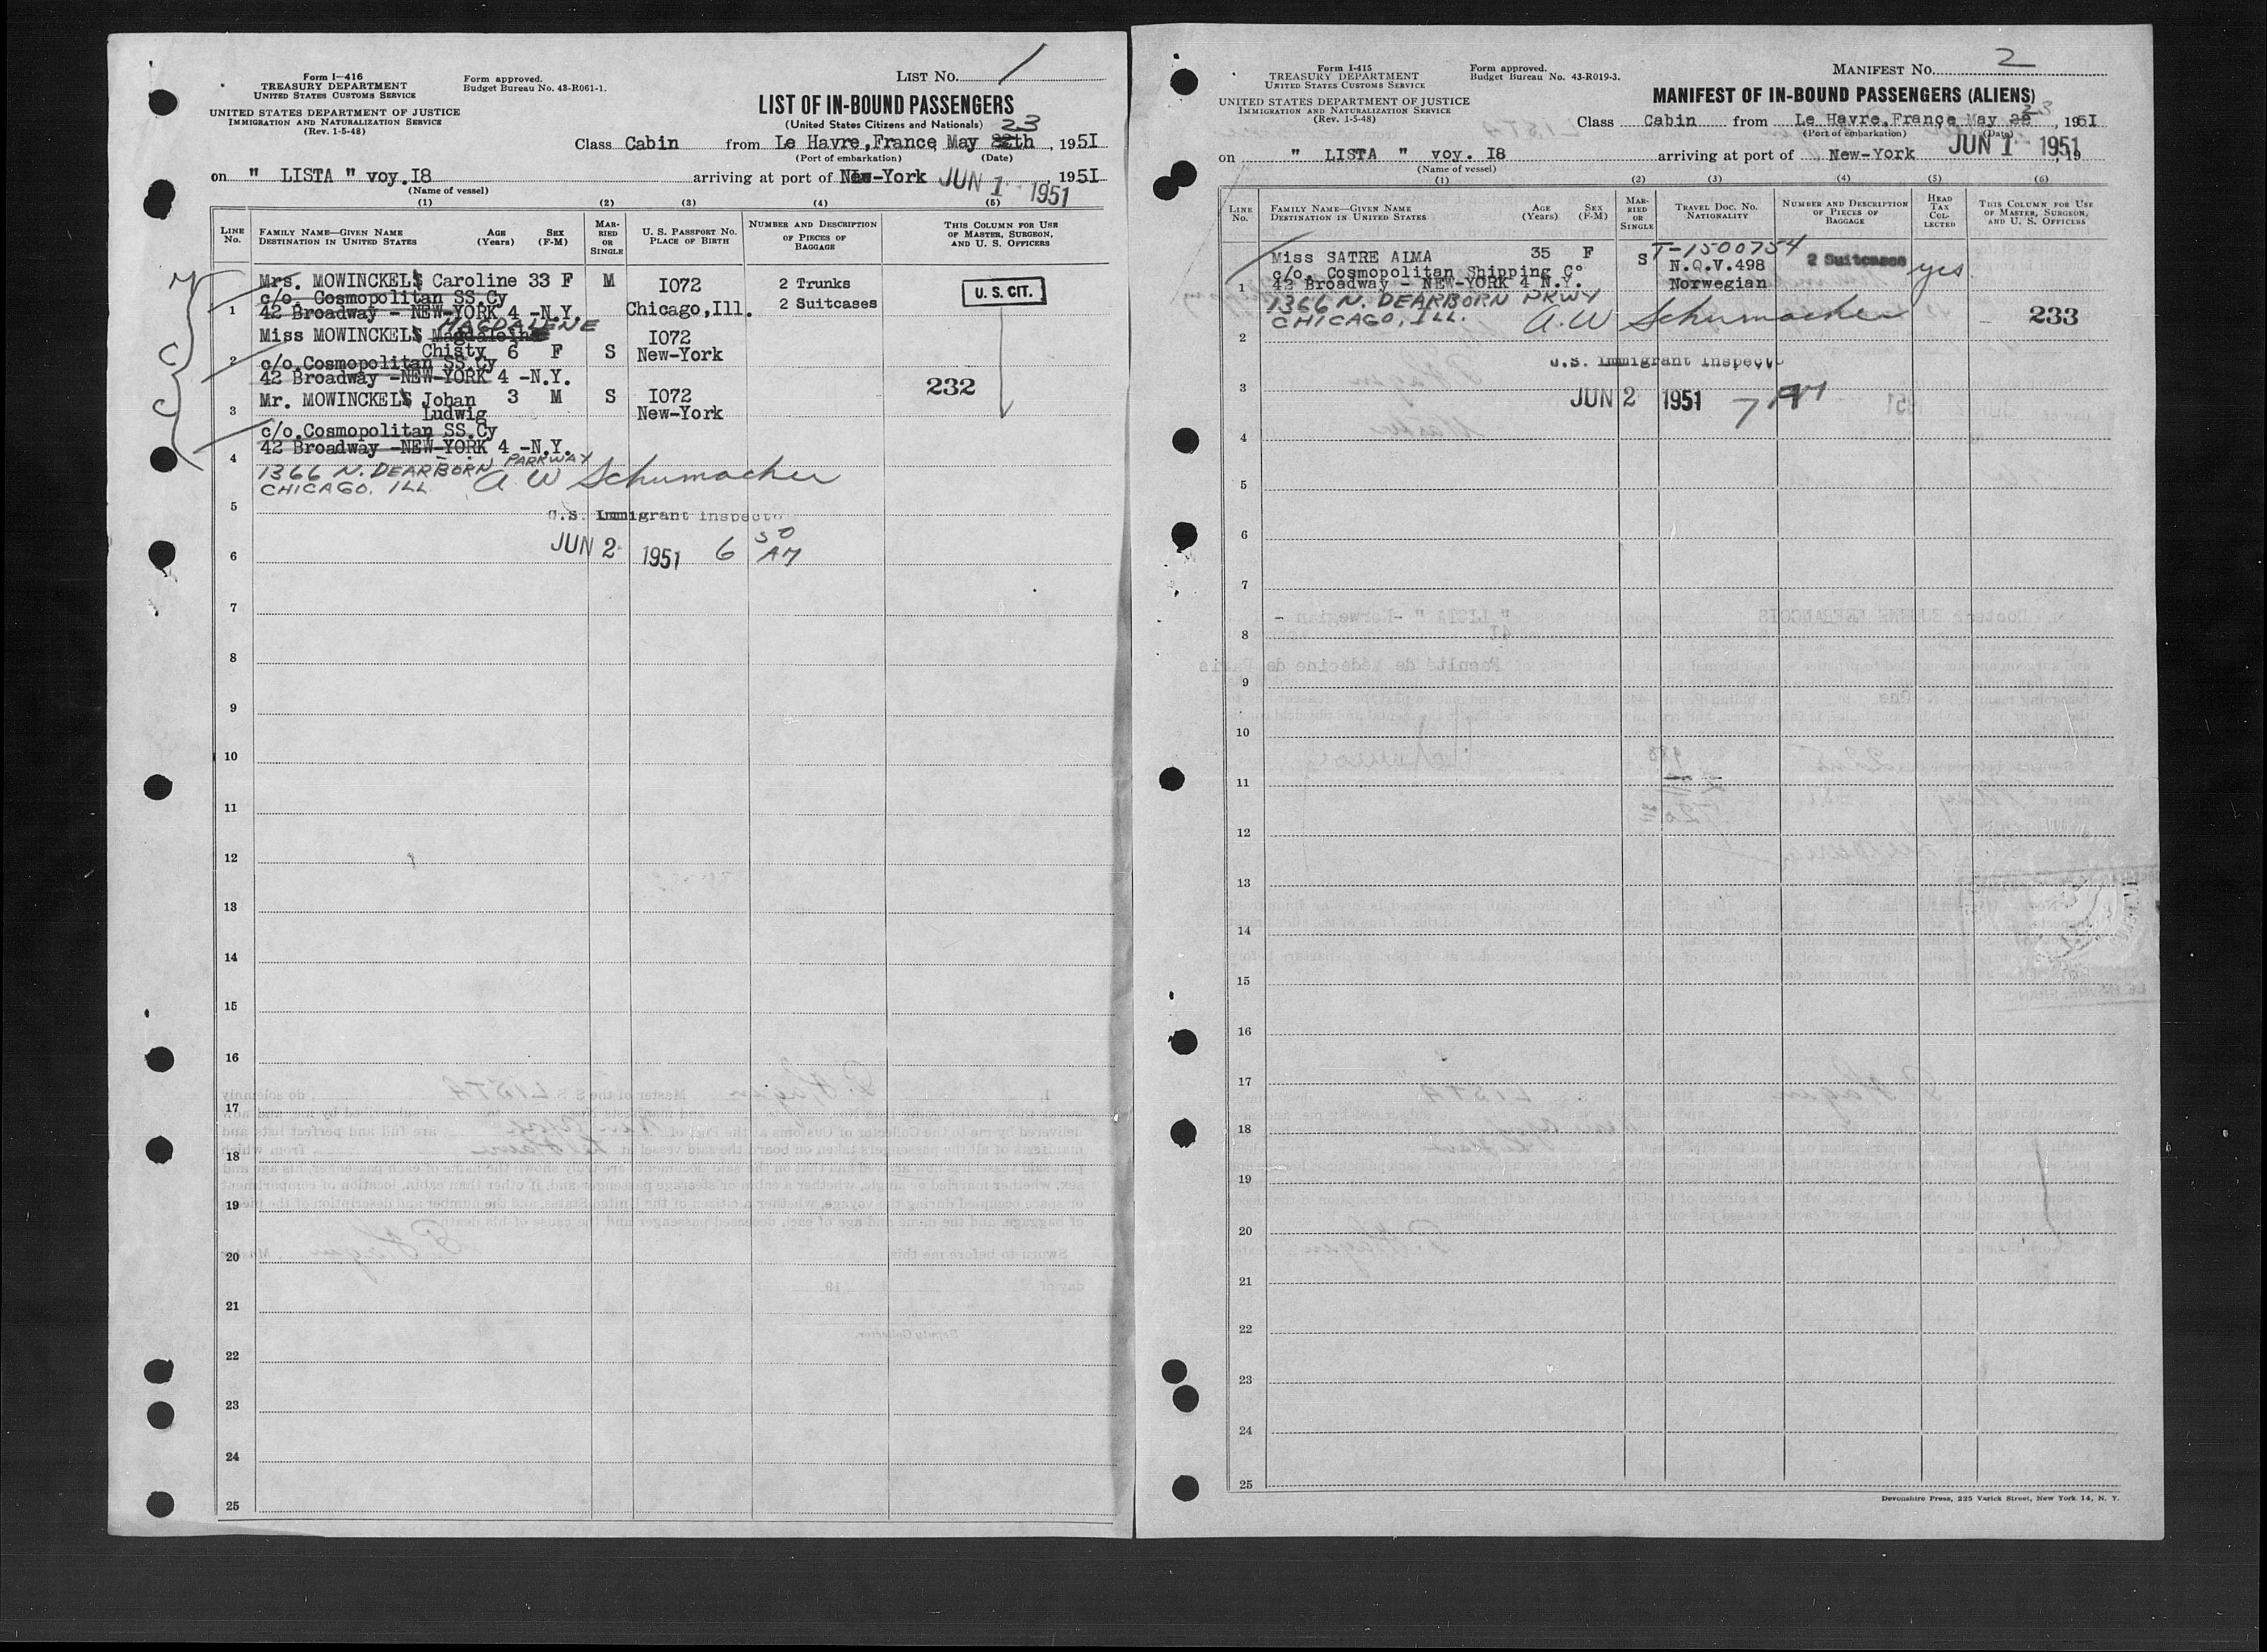 Form I-416
TREASURY DEPARTMENT
UNITED STATES CUSTOMS SERVICE
UNITED STATES DEPARTMENT OF JUSTICE
IMMIGRATION AND NATURALIZATION SERVICE
(Rev. 1-5-48)
Form approved.
Budget Bureau No. 43-R061-1.
LIST NO. 1
LIST OF IN-BOUND PASSENGERS
(United States Citizens and Nationals)
23
Class Cabin from Le Havre, France May 22th, 1951
(Port of embarkation) (Date)
on " LISTA " voy. I8 arriving at port of New-York JUN 1 1951, 1951
(Name of vessel)
(1) (2) (3) (4) (5)
LINE No. FAMILY NAME—GIVEN NAME DESTINATION IN UNITED STATES AGE (Years) SEX (F-M) MARRIED OR SINGLE U. S. PASSPORT NO. PLACE OF BIRTH NUMBER AND DESCRIPTION OF PIECES OF BAGGAGE THIS COLUMN FOR USE OF MASTER, SURGEON, AND U. S. OFFICERS
Mrs. MOWINCKELS Caroline 33 F M I072 2 Trunks U. S. CIT.
c/o. Cosmopolitan SS.Cy
1 42 Broadway - NEW-YORK 4 -N.Y. Chicago,Ill. 2 Suitcases
MAGDALENE
Miss MOWINCKELS Magdaleine I072
Chisty 6 F S New-York
2 c/o.Cosmopolitan SS.Cy
42 Broadway -NEW-YORK 4 -N.Y.
232
Mr. MOWINCKELS Johan 3 M S I072
3 Ludwig New-York
c/o.Cosmopolitan SS.Cy
42 Broadway -NEW-YORK 4 -N.Y.
4 1366 N. DEARBORN PARKWAY
CHICAGO, ILL A W Schumacher
5 U.S. Immigrant Inspector
6 JUN 2 1951 6 30 AM
7
8
9
10
11
12
13
14
15
16
17
18
19
20
21
22
23
24
25
Form I-415
TREASURY DEPARTMENT
UNITED STATES CUSTOMS SERVICE
UNITED STATES DEPARTMENT OF JUSTICE
IMMIGRATION AND NATURALIZATION SERVICE
(Rev. 1-5-48)
Form approved.
Budget Bureau No. 43-R019-3.
MANIFEST NO. 2
MANIFEST OF IN-BOUND PASSENGERS (ALIENS)
23
Class Cabin from Le Havre, France May 22, 1951
(Port of embarkation) (Date)
on " LISTA " voy. I8 arriving at port of New-York JUN 1 1951 19
(Name of vessel)
(1) (2) (3) (4) (5) (6)
LINE No. FAMILY NAME—GIVEN NAME DESTINATION IN UNITED STATES AGE (Years) SEX (F-M) MARRIED OR SINGLE TRAVEL DOC. NO. NATIONALITY NUMBER AND DESCRIPTION OF PIECES OF BAGGAGE HEAD TAX COLLECTED THIS COLUMN FOR USE OF MASTER, SURGEON, AND U. S. OFFICERS
T-1500754
Miss SATRE ALMA 35 F S N.Q.V.498 2 Suitcases yes.
c/o. Cosmopolitan Shipping C°
1 42 Broadway - NEW-YORK 4 N.Y. Norwegian
1366 N. DEARBORN PKWY
CHICAGO, ILL. A. W Schumacher 233
2
U.S. Immigrant Inspector
3 JUN 2 1951 7 AM
4
5
6
7
8
9
10
11
12
13
14
15
16
17
18
19
20
21
22
23
24
25
Devonshire Press, 225 Varick Street, New York 14, N. Y.